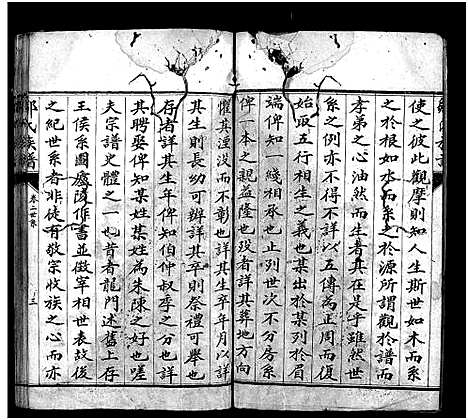 使之彼此觀摩則知人生斯世如木而系
之於根如水而系之於源所謂觀於譜而
孝弟之心油然而生者其在是乎雖然世
系之例亦不得不詳以五傳為正周而復
始取五行相生之義也某出於某列於眉
端俾知一線相承也止列世次不分房系
俾一本之親益隆也歿者詳其葬地方向
懼其湮沒而不彰也詳其生卒年月以詳
其生則長幼可辨詳其卒則祭禮可舉也
存者詳其生年俾知伯仲叔季之分也詳
其聘娶俾知某姓某姓為朱陳之好也嗟
夫宗譜史體之一也昔者龍門述舊上存
王侯系圖廬陵作書並徵宰相世表故後
之紀世系者非徒有敬宗收族之心而亦
鄒氏族譜
卷二世系
三